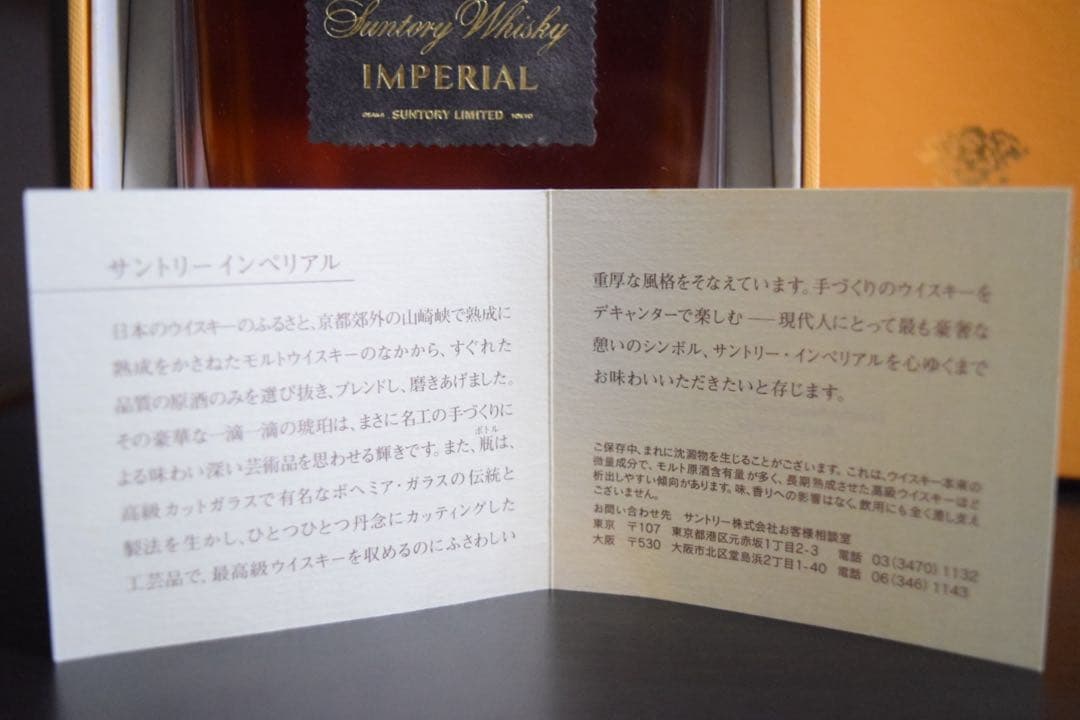 Suntory Whisky
IMPERIAL
OSAKA SUNTORY LIMITED TOKYO
サントリー インペリアル
日本のウイスキーのふるさと、京都郊外の山崎峡で熟成に
熟成をかさねたモルトウイスキーのなかから、すぐれた
品質の原酒のみを選び抜き、ブレンドし、磨きあげました。
その豪華な一滴一滴の琥珀は、まさに名工の手づくりに
ボトル
よる味わい深い芸術品を思わせる輝きです。また、瓶は、
高級カットガラスで有名なボヘミア・ガラスの伝統と
製法を生かし、ひとつひとつ丹念にカッティングした
工芸品で、最高級ウイスキーを収めるのにふさわしい
重厚な風格をそなえています。手づくりのウイスキーを
デキャンターで楽しむ――現代人にとって最も豪奢な
憩いのシンボル、サントリー・インペリアルを心ゆくまで
お味わいいただきたいと存じます。
ご保存中、まれに沈澱物を生じることがございます。これは、ウイスキー本来の
微量成分で、モルト原酒含有量が多く、長期熟成させた高級ウイスキーほど
析出しやすい傾向があります。味、香りへの影響はなく、飲用にも全く差し支え
ございません。
お問い合わせ先 サントリー株式会社お客様相談室
東京 〒107 東京都港区元赤坂1丁目2-3 電話 03(3470)1132
大阪 〒530 大阪市北区堂島浜2丁目1-40 電話 06(346)1143